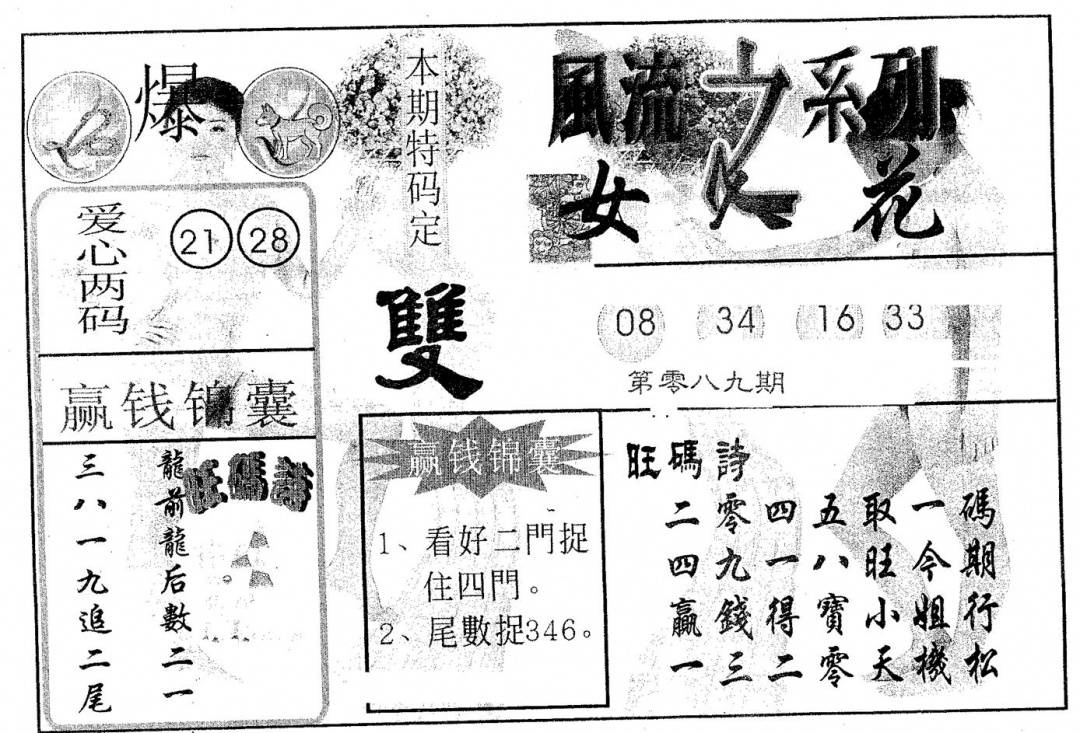 爆
本期特码定
雙
風流之系列
女人花
爱心两码
21 28
08 34 16 33
第零八九期
赢钱锦囊
旺碼詩
龍前龍后數二一
三八一九追二尾
赢钱锦囊
1、看好二門捉
住四門。
2、尾數捉346。
旺碼詩
二零四五取一碼
四九一八旺今期
贏錢得寶小姐行
一三二零天機松